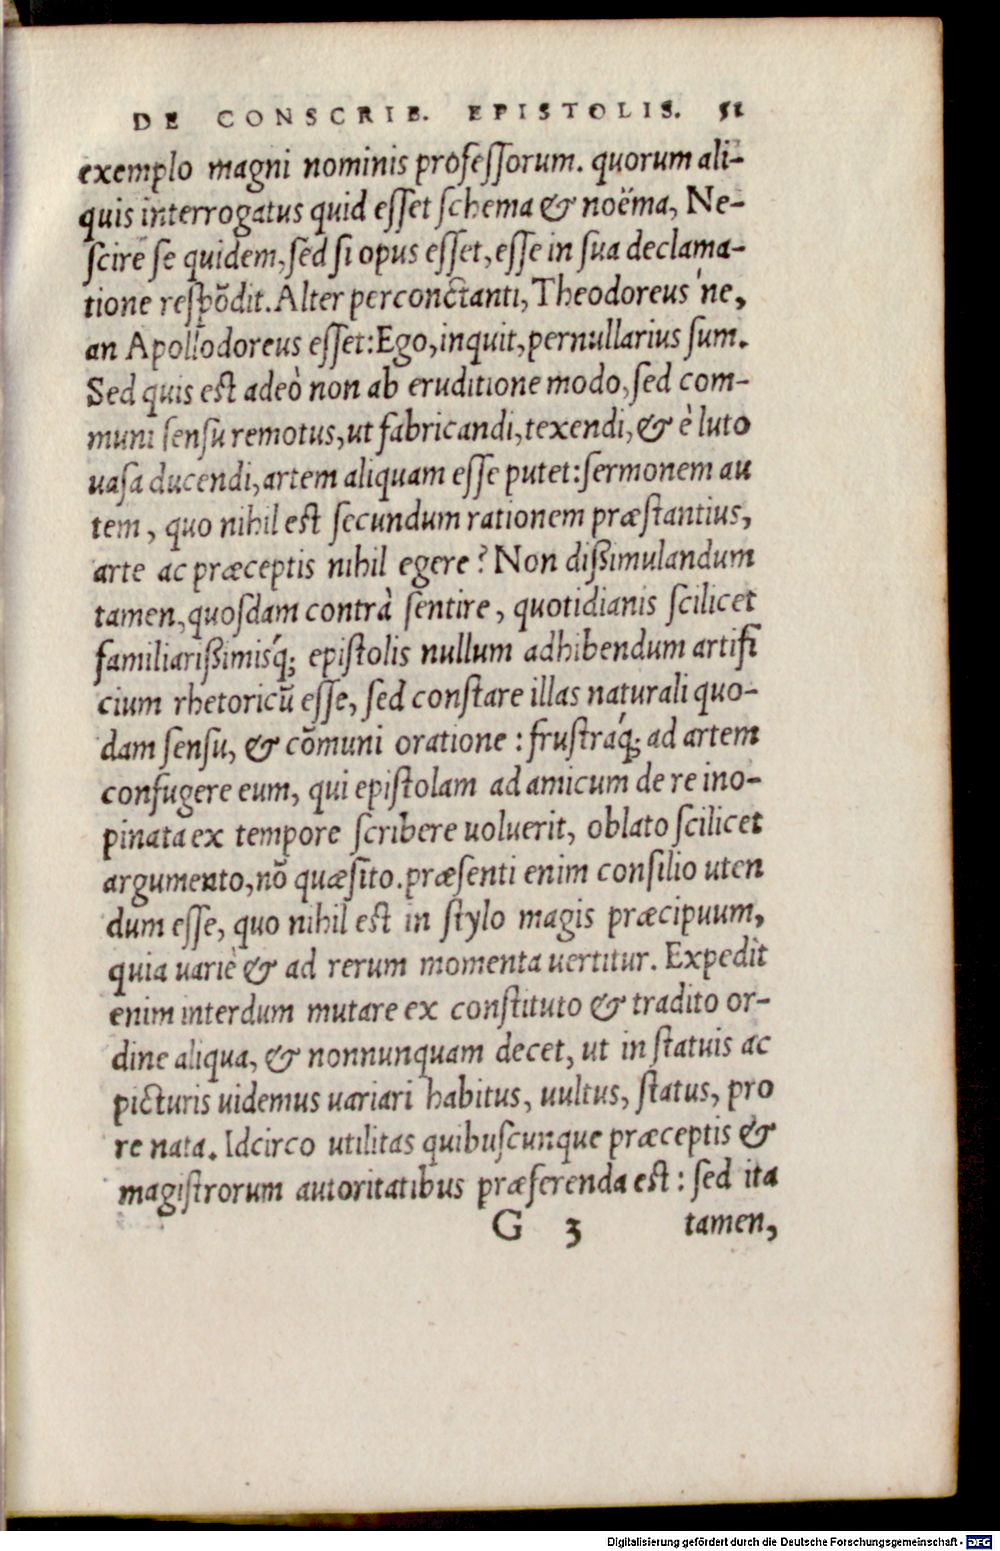 DE CONSCRIB. EPISTOLIS. 51
exemplo magni nominis professorum. quorum ali-
quis interrogatus quid esset schema & noëma, Ne-
scire se quidem, sed si opus esset, esse in sua declama-
tione respõdit. Alter perconctanti, Theodoreus'ne,
an Apollodoreus esset: Ego, inquit, pernullarius sum.
Sed quis est adeò non ab eruditione modo, sed com-
muni sensu remotus, ut fabricandi, texendi, & è luto
uasa ducendi, artem aliquam esse putet: sermonem au
tem, quo nihil est secundum rationem præstantius,
arte ac præceptis nihil egere? Non dißimulandum
tamen, quosdam contrà sentire, quotidianis scilicet
familiarißimisq́; epistolis nullum adhibendum artifi
cium rhetoricũ esse, sed constare illas naturali quo-
dam sensu, & cõmuni oratione: frustraq́; ad artem
confugere eum, qui epistolam ad amicum de re ino-
pinata ex tempore scribere uoluerit, oblato scilicet
argumento, nõ quæsito. præsenti enim consilio uten
dum esse, quo nihil est in stylo magis præcipuum,
quia uariè & ad rerum momenta uertitur. Expedit
enim interdum mutare ex constituto & tradito or-
dine aliqua, & nonnunquam decet, ut in statuis ac
picturis uidemus uariari habitus, uultus, status, pro
re nata. Idcirco utilitas quibuscunque præceptis &
magistrorum autoritatibus præferenda est: sed ita
G 3 tamen,
Digitalisierung gefördert durch die Deutsche Forschungsgemeinschaft - DFG